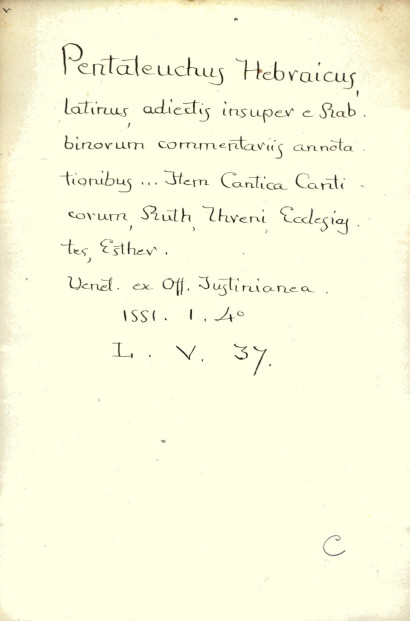 Pentateuchus Hebraicus,
latinus, adiectis insuper e Rab-
binorum commentariis annota-
tionibus... Item Cantica Canti-
corum, Ruth, Threni, Ecclesias-
tes, Esther.
Venet. ex Off. Justinianea.
1551. 1. 4º
L. V. 37.
C